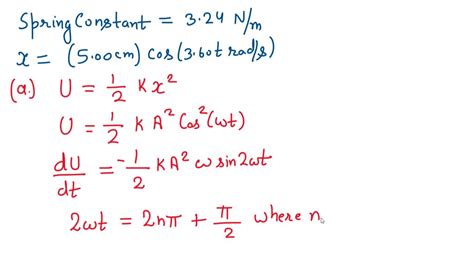 Spring Constant = 3.24 N/m
x = (5.00cm) cos(3.60t rad/s)
(a.) U = 1/2 K x²
U = 1/2 K A² Cos²(ωt)
dU/dt = -1/2 KA² ω sin2ωt
2ωt = 2nπ + π/2 where n